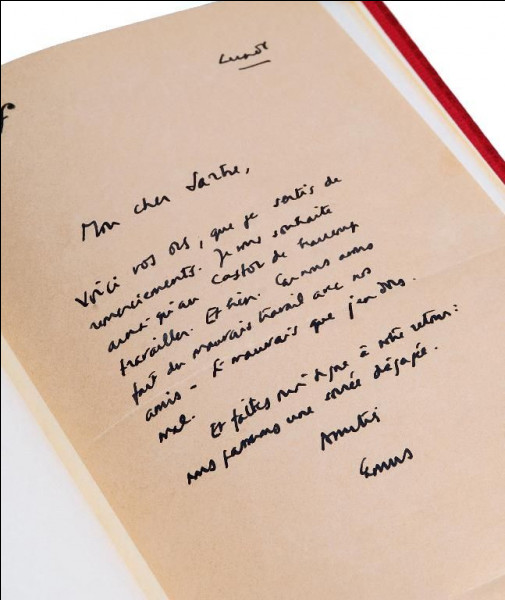 Lundi
Mon cher Sartre,
Voici vos ors, que je sertis de
remerciements. Je vous souhaite
ainsi qu'au Castor de beaucoup
travailler. Et bien. Car nous avons
fait du mauvais travail avec nos
amis - Si mauvais que j'en dors
mal.
Et faites moi signe à votre retour :
nous passerons une soirée dégagée.
Amitié
Camus